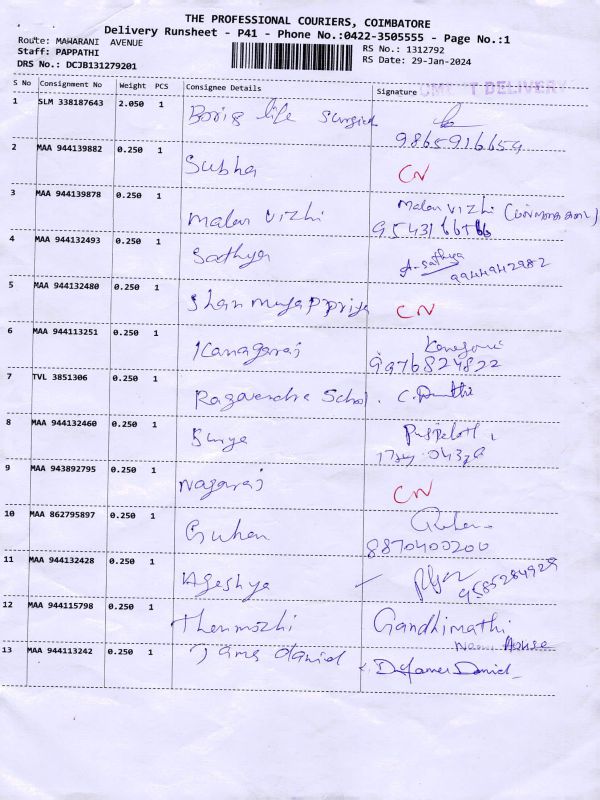 THE PROFESSIONAL COURIERS, COIMBATORE
Delivery Runsheet - P41 - Phone No.:0422-3505555 - Page No.:1
Route: MAHARANI AVENUE
RS No.: 1312792
Staff: PAPPATHI
RS Date: 29-Jan-2024
DRS No.: DCJB131279201
S No Consignment No Weight PCS Consignee Details Signature
DELIVERY
1 SLM 338187643 2.050 1 Boris life Surgical
9865916654
2 MAA 944139882 0.250 1 Subha CN
3 MAA 944139878 0.250 1 Malar vizhi Malar vizhi
4 MAA 944132493 0.250 1 Sathya A. Sathya
9944942982
5 MAA 944132480 0.250 1 Shanmugappriya CN
6 MAA 944113251 0.250 1 Kanagaraj
9976824822
7 TVL 3851306 0.250 1 Ragavendra School.
8 MAA 944132460 0.250 1 Surya
9 MAA 943892795 0.250 1 Nagaraj CN
10 MAA 862795897 0.250 1 Guhan Guhan
8870400200
11 MAA 944132428 0.250 1 Ageshya
9585284929
12 MAA 944115798 0.250 1 Thenmozhi Gandhimathi
House
13 MAA 944113242 0.250 1 James daniel D. James Daniel